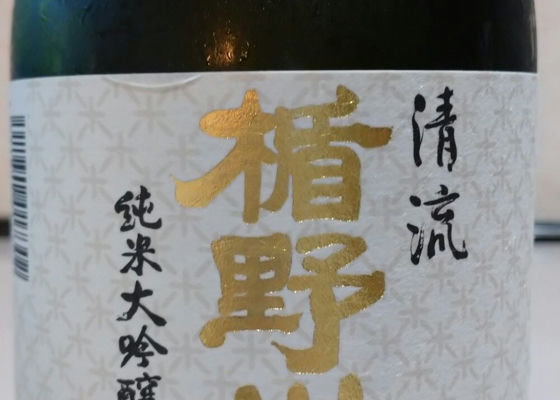 清流
楯野川
純米大吟醸